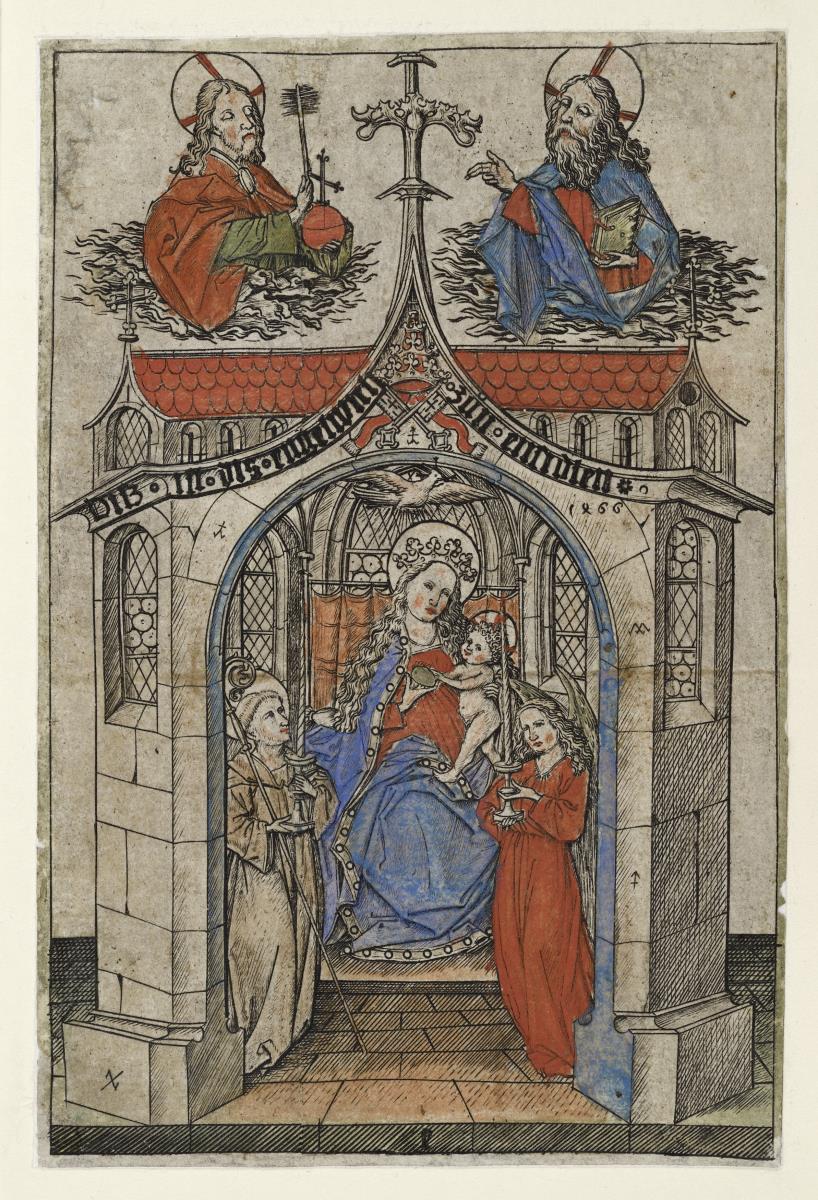 diß · ist · dis · engelwichi · zun · einsidlen
1466